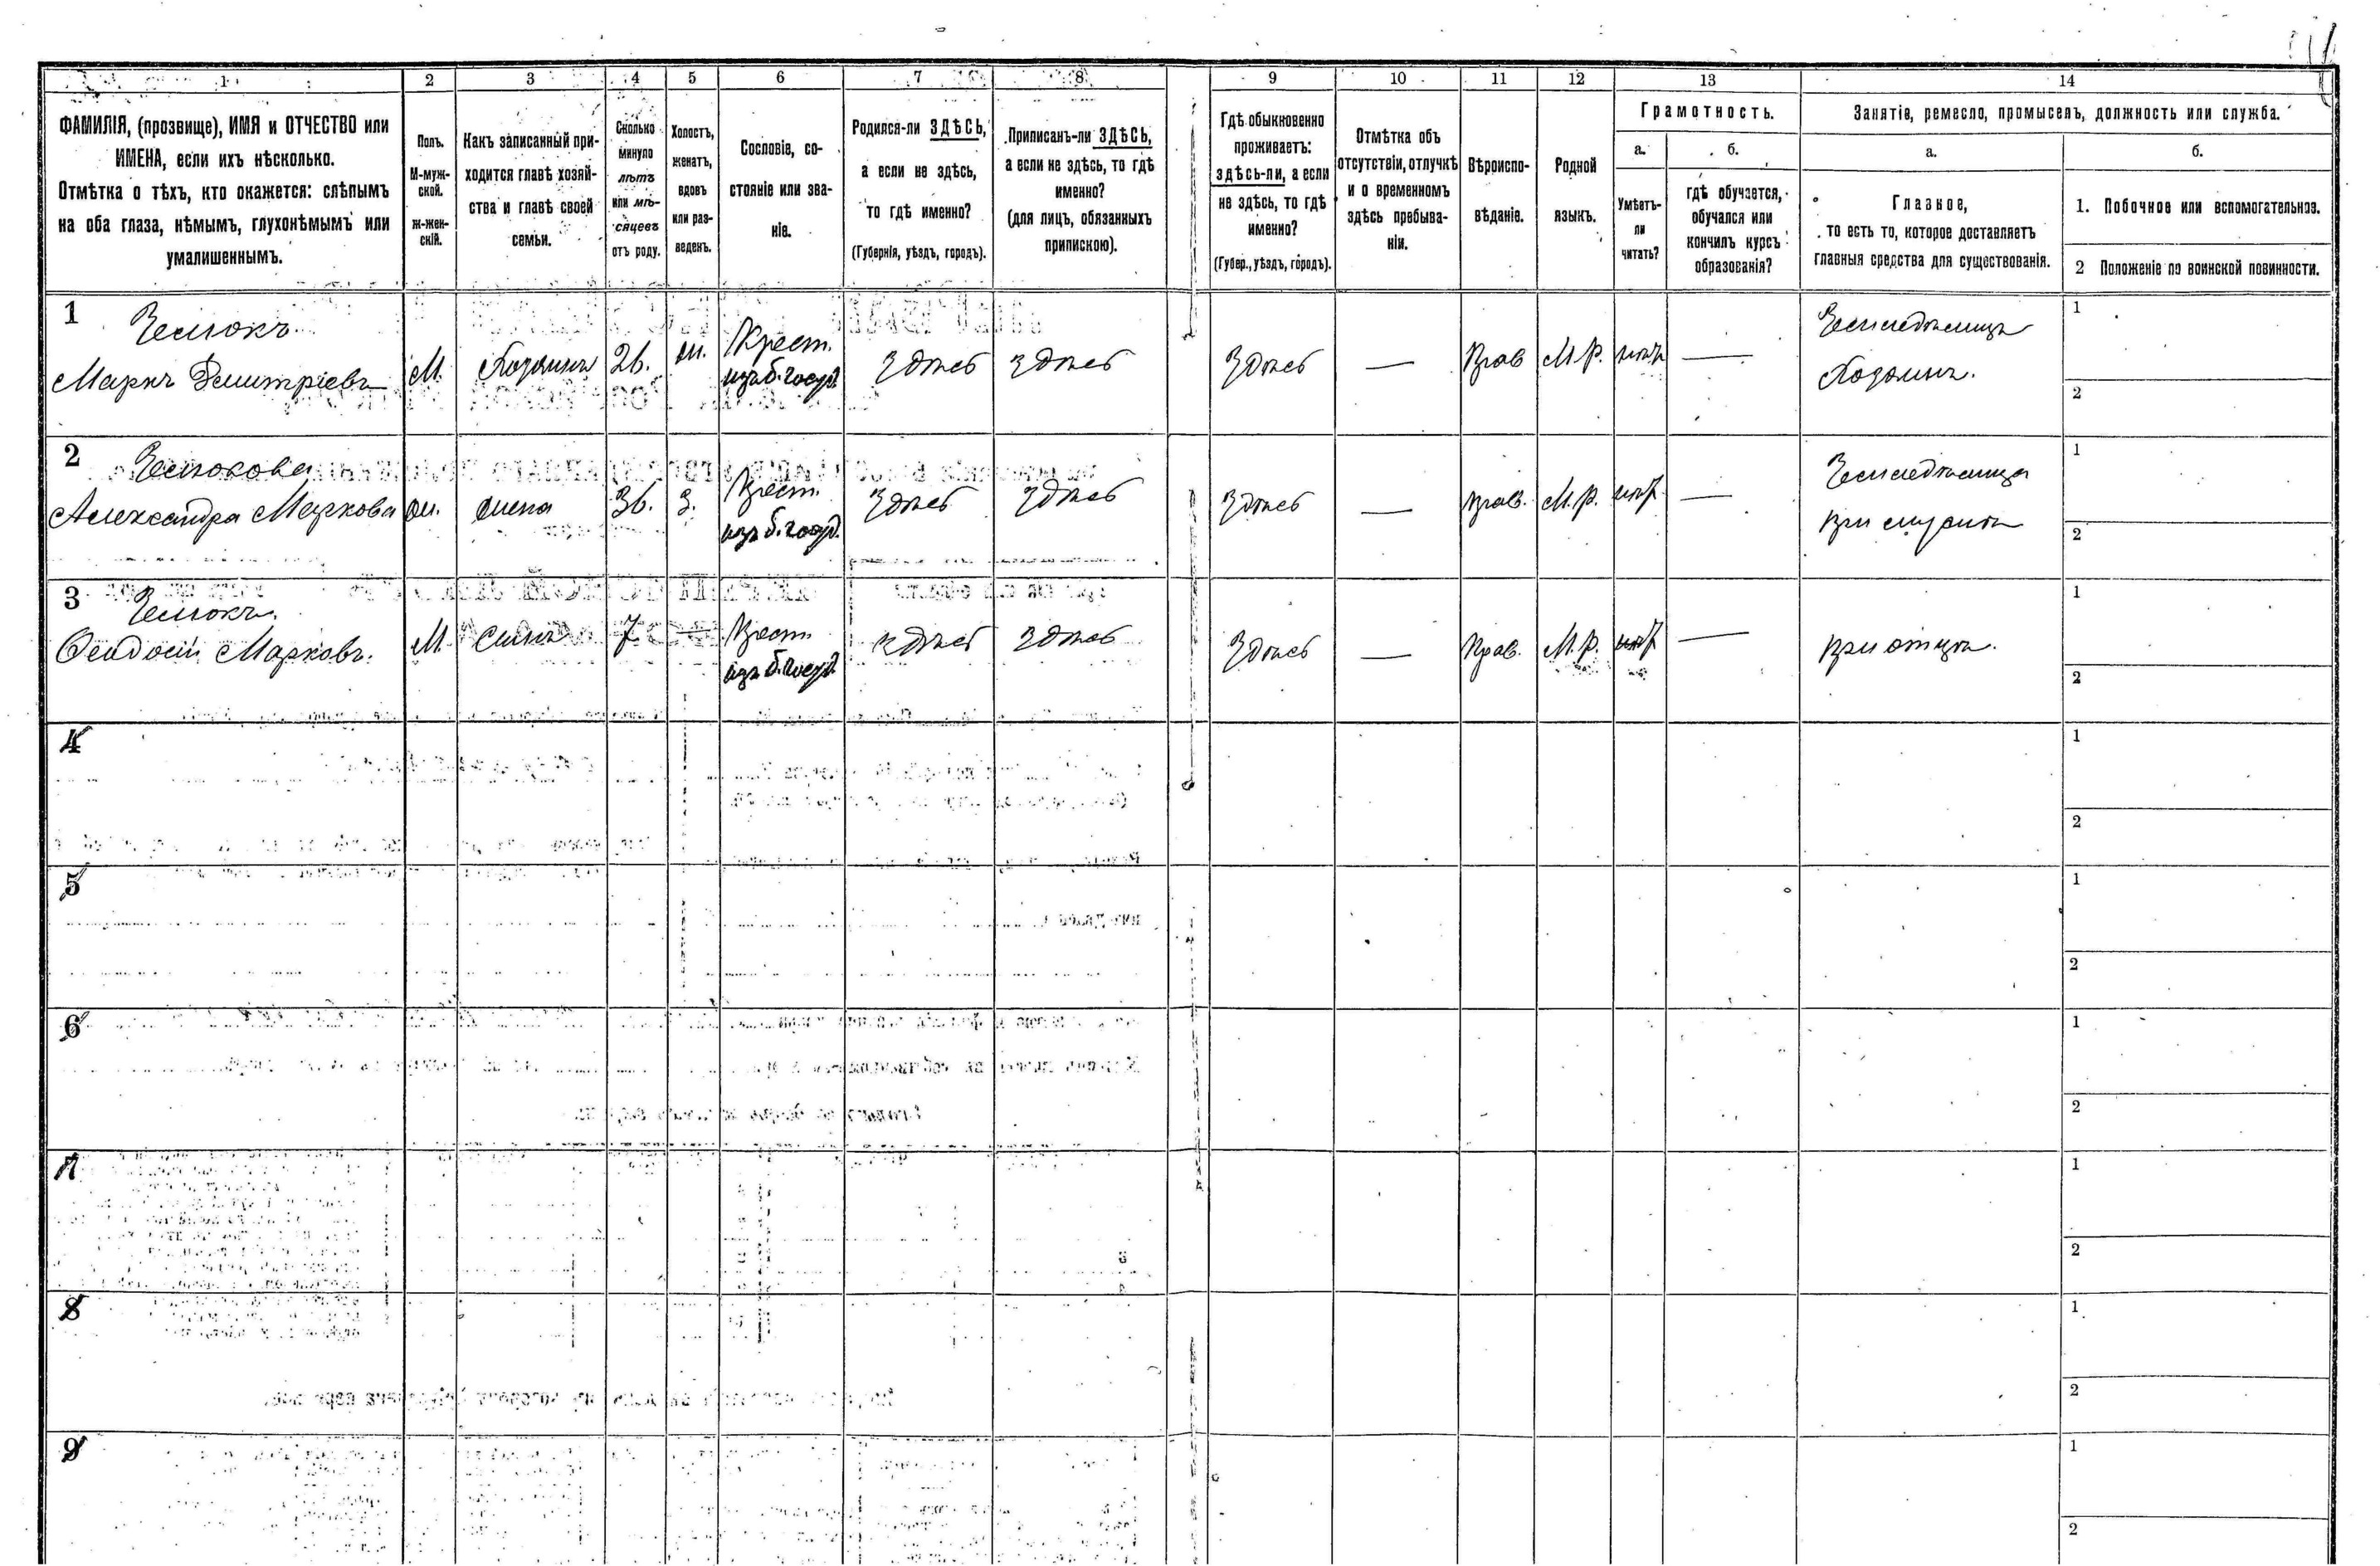 1
2
3
4
5
6
7
8
9
10
11
12
13
14
ФАМИЛІЯ, (прозвище), ИМЯ и ОТЧЕСТВО или
ИМЕНА, если ихъ нѣсколько.
Отмѣтка о тѣхъ, кто окажется: слѣпымъ
на оба глаза, нѣмымъ, глухонѣмымъ или
умалишеннымъ.
Полъ.
М-муж-
ской.
ж-жен-
скій.
Какъ записанный при-
ходится главѣ хозяй-
ства и главѣ своей
семьи.
Сколько
минуло
лѣтъ
или мѣ-
сяцевъ
отъ роду.
Холостъ,
женатъ,
вдовъ
или раз-
веденъ.
Сословіе, со-
стояніе или зва-
ніе.
Родился-ли ЗДѢСЬ,
а если не здѣсь,
то гдѣ именно?
(Губернія, уѣздъ, городъ).
Приписанъ-ли ЗДѢСЬ,
а если не здѣсь, то гдѣ
именно?
(для лицъ, обязанныхъ
припискою).
Гдѣ обыкновенно
проживаетъ:
здѣсь-ли, а если
не здѣсь, то гдѣ
именно?
(Губер., уѣздъ, городъ).
Отмѣтка объ
отсутствіи, отлучкѣ
и о временномъ
здѣсь пребыва-
ніи.
Вѣроиспо-
вѣданіе.
Родной
языкъ.
Грамотность.
а.
Умѣетъ-
ли
читать?
б.
гдѣ обучается,
обучался или
кончилъ курсъ
образованія?
Занятіе, ремесло, промыселъ, должность или служба.
а.
Главное,
то есть то, которое доставляетъ
главныя средства для существованія.
б.
1. Побочное или вспомогательное.
2 Положеніе по воинской повинности.
1
Маркъ Дмитріевъ
М.
Хозяинъ
26.
ж.
Крест.
изъ б. госуд.
Здѣсь
Здѣсь
Здѣсь
—
Прав
М.Р.
нѣтъ
—
Земледѣлецъ
Хозяинъ.
1
2
2
Александра Маркова
ж.
жена
36.
З.
Крест.
изъ б. госуд.
Здѣсь
Здѣсь
Здѣсь
—
Прав.
М.Р.
нѣт
—
При мужѣ
1
2
3
Феодосій Марковъ.
М.
Сынъ
7
—
Крест.
изъ б. госуд.
Здѣсь
Здѣсь
Здѣсь
—
Прав.
М.Р.
нѣт
—
При отцѣ.
1
2
4
1
2
5
1
2
6
1
2
7
1
2
8
1
2
9
1
2